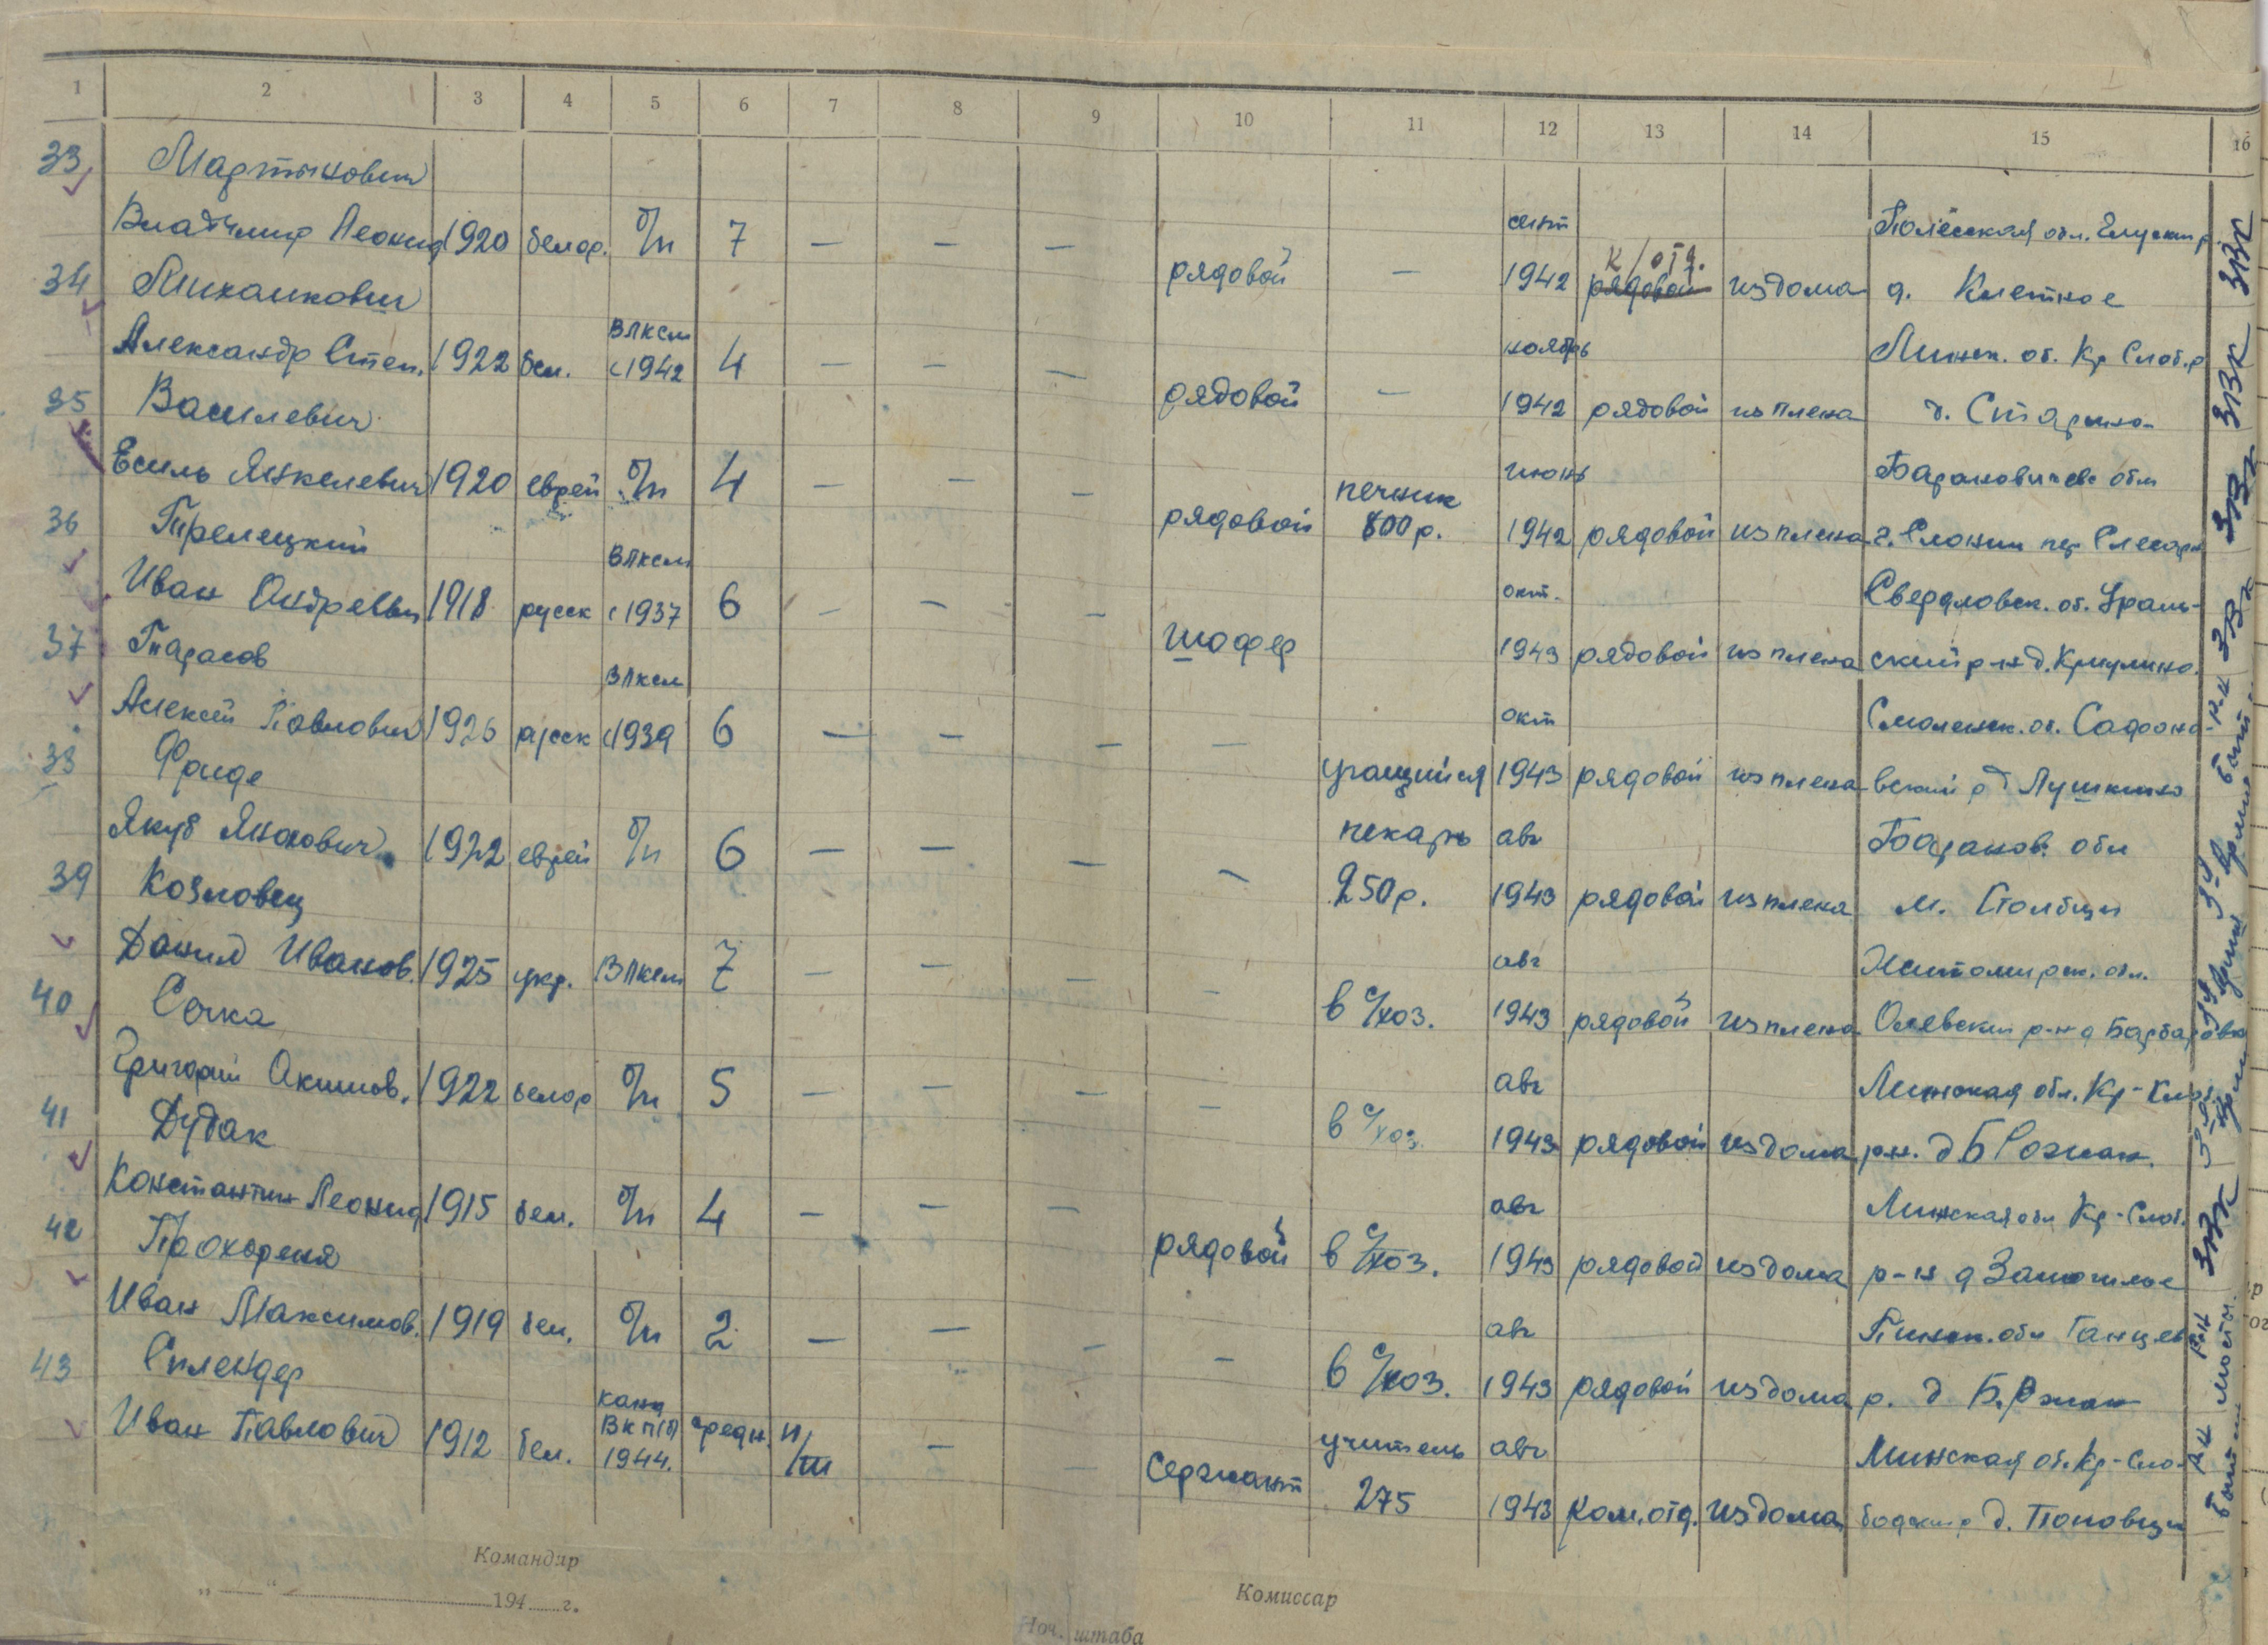 1 2 3 4 5 6 7 8 9 10 11 12 13 14 15 16
33 Мартынович
сент Полесская обл.
Владимир Леонид 1920 белор. б/п 7 — — — рядовой — 1942 к/отд. рядовой из дома д. Клетное
34 Михалкович
ВЛКСМ ноябрь Минск. об. Кр Слоб. р
Александр Степ. 1922 бел. с 1942 4 — — — рядовой — 1942 рядовой из плена д. Старино
35 Василевич
печник июнь обл
Есиль Янкелевич 1920 еврей б/п 4 — — — рядовой 800 р. 1942 рядовой из плена г. Слоним пер
36 Трелецкий
ВЛКСМ окт. Свердловск. об. Ураль-
Иван Андреевич 1918 русск с 1937 6 — — — шофер 1943 рядовой из плена ский р-н д. Криулино.
37 Тарасов
ВЛКСМ окт Смоленск. об. Сафоно-
Алексей Павлович 1926 русск с 1939 6 — — — — учащийся 1943 рядовой из плена вский р д Лушкино
38 Фриде
пекарь авг Баранов. обл
Якуб Янохович 1922 еврей б/п 6 — — — — 250 р. 1943 рядовой из плена м. Столбцы
39 Козловец
авг Житомирск. обл.
Данил Иванов. 1925 укр. ВЛКСМ 7 — — — — в с/хоз. 1943 рядовой из плена Олевский р-н д Барбаровка
40 Сечка
авг Минская обл. Кр-
Григорий Акимов. 1922 белор б/п 5 — — — — в с/хоз. 1943 рядовой из дома р-н. д Б Рожан.
41 Дудак
авг Минская обл Кр-Слоб.
Константин Леонид 1915 бел. б/п 4 — — — рядовой в с/хоз. 1943 рядовой из дома р-н д
42 Прохореня
авг Пинск. обл Ганцев
Иван Максимов. 1919 бел. б/п 2 — — — — в с/хоз. 1943 рядовой из дома р. д Б. Рожан
43 Сплендер
канд ВКП(б) учитель авг Минская об. Кр-Сло-
Иван Павлович 1912 бел. 1944. средн. н/ш — — сержант 275 1943 Ком. отд. из дома бодский р д. Поповцы
ЗВК ЗВК ЗВК ЗВК
ЗВК
Командир
„——“ 194 г.
Комиссар
Нач. штаба